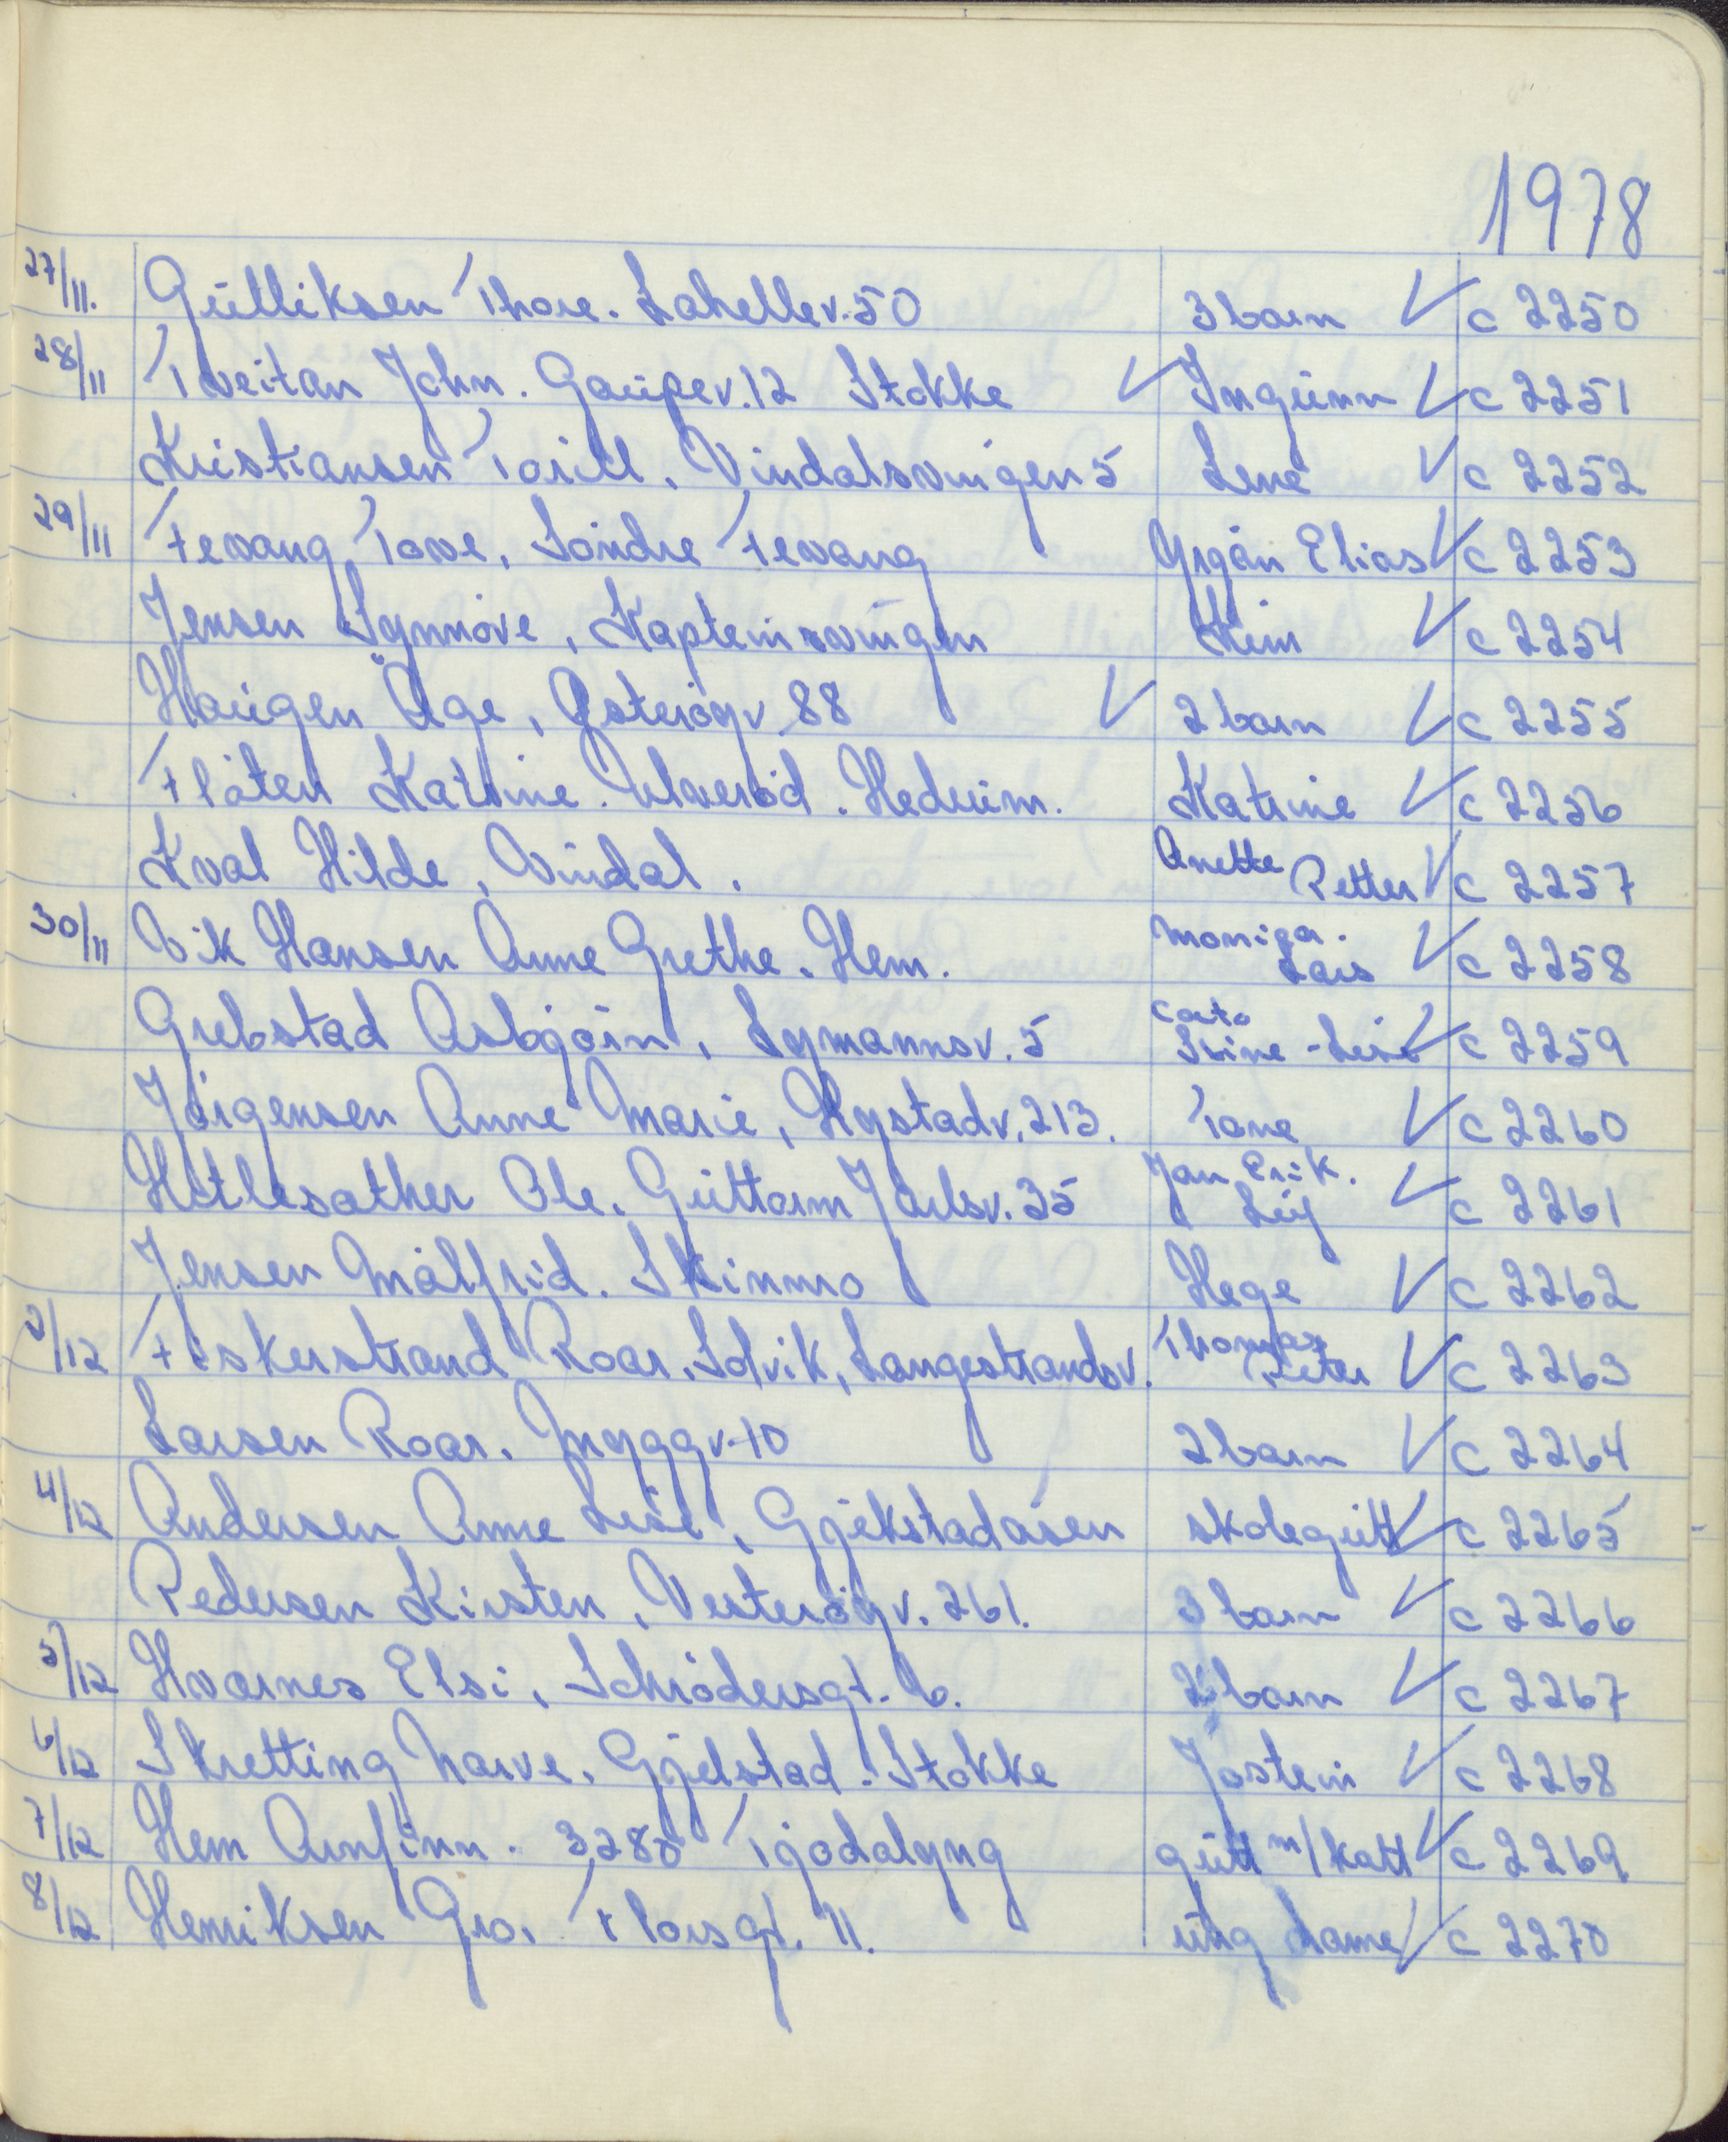 1978
27/11. Gulliksen Thore. Lahellev. 50 3 barn ✓ c 2250
28/11 Tveitan John. Gaupev. 12 Stokke ✓ Ingunn ✓ c 2251
Kristiansen Torill, Vindalsvingen 5 Lene ✓ c 2252
29/11 Fevang Tove, Söndre Fevang Ørjan Elias ✓ c 2253
Jensen Synnöve, Kapteinsvingen Kim ✓ c 2254
Haugen Åge, Østeröyv 88 ✓ 2 barn ✓ c 2255
Flåten Katrine. Ulveröd. Hedrum. Katrine ✓ c 2256
Kval Hilde, Vindal. Anette Petter ✓ c 2257
30/11 Vik Hansen Anne Grethe. Hem. Moniqa. Lars ✓ c 2258
Grebstad Asbjörn, Lymannsv. 5 Cato Stine-Lise ✓ c 2259
Jörgensen Anne Marie, Nystadv. 213. Tone ✓ c 2260
Hetlesæther Ole. Guttorm Jarlsv. 35 Jan Erik. Siij ✓ c 2261
Jensen Målfrid. Skinmo Hege ✓ c 2262
2/12 Fiskerstrand Roar, Solvik, Langestrandsv. Thomas Peter ✓ c 2263
Larsen Roar. Myggv. 10 2 barn ✓ c 2264
4/12 Andersen Anne Lise, Gjekstadåsen skolegutt ✓ c 2265
Pedersen Kirsten, Vesteröyv. 261. 3 barn ✓ c 2266
5/12 Hvarnes Elsi, Schrödersgt. 6. 2 barn ✓ c 2267
6/12 Skretting Narve. Gjelstad. Stokke Jostein ✓ c 2268
7/12 Hem Arnfinn. 3280 Tjodalyng gutt m/katt ✓ c 2269
8/12 Henriksen Gro, Thorsgt. 11. ung dame ✓ c 2270